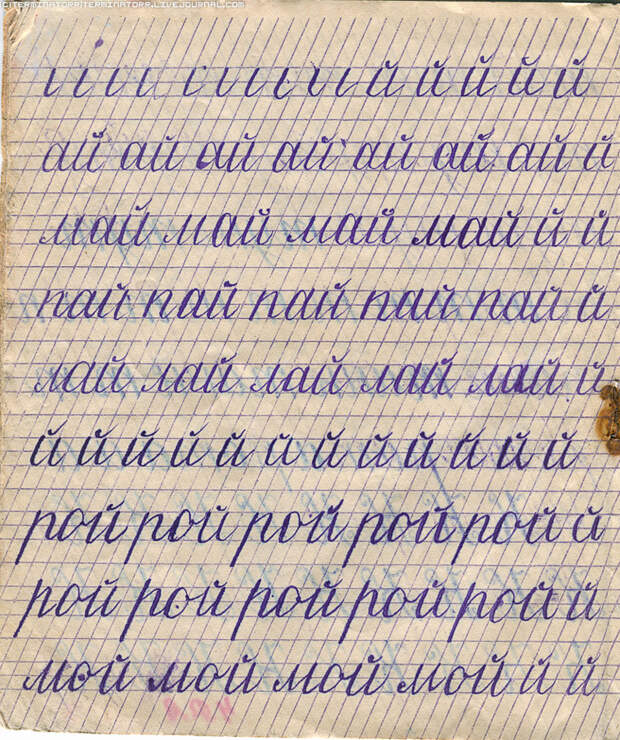 ©ITERMINATORRITERMINATORR.LIVEJOURNAL.COM
й й й й й
ай ай ай ай ай ай ай й
май май май май й й
пай пай пай пай пай й
лай лай лай лай лай й
й й й й й й й й й й й й
рой рой рой рой рой й
рой рой рой рой рой й
мой мой мой мой й й